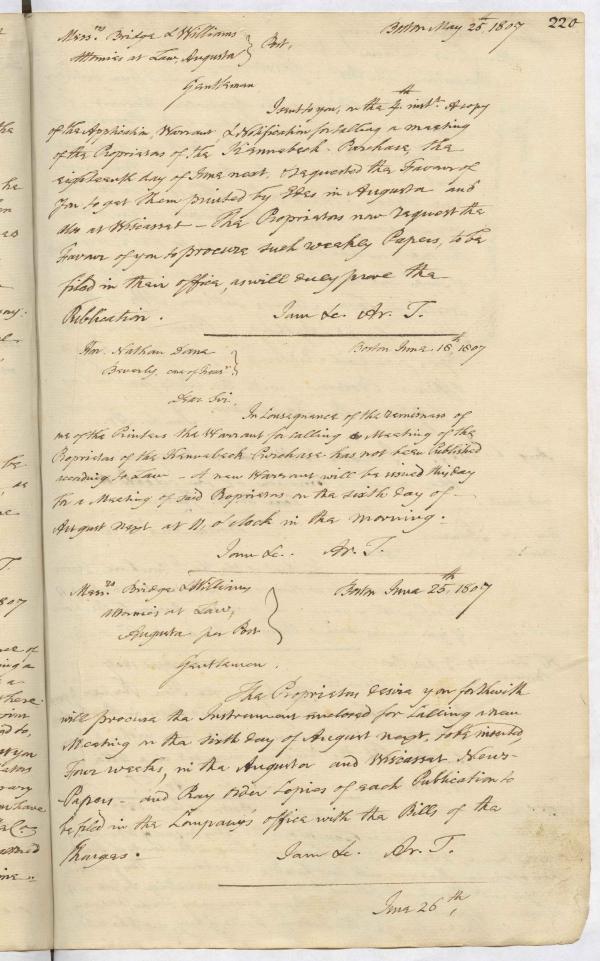 220
Boston May 25th, 1807
Messrs. Bridge & Williams
Attornies at Law, Augusta } Post,
Gentlemen
I sent to you, on the 4th inst. A copy
of the Application, Warrant & Notification for calling a meeting
of the Proprietors of the Kennebeck Purchase, the
eighteenth day of June next, & requested the Favour of
you to get them printed by Edes in Augusta and
also at Wiscasset — The Proprietors now request the
Favour of you to procure such weekly Papers, to be
filed in their office, as will duly prove the
Publication. I am &c. Ar. T.
Hon. Nathan Dane
Boston June 18th, 1807
Beverly, one of
Dear Sir.
In Consequence of the remissness of
one of the Printers the Warrant for calling a Meeting of the
Proprietors of the Kennebeck Purchase has not been Published
according to Law — A new Warrant will be issued this day
for a Meeting of said Proprietors on the sixth day of —
August next at 11, o'clock in the morning.
I am &c. Ar. T.
Messrs Bridge & Williams
Boston June 25th, 1807
Attornies at Law,
Augusta per Post
Gentlemen.
The Proprietors desire you forthwith
will procure the Instrument enclosed for calling a new
Meeting on the sixth day of August next, to be inserted,
Four weeks, in the Augusta and Wiscasset News-
Papers — and Pray order Copies of each Publication to
be filed in the Company's office with the Bills of the
Charges. I am &c. Ar. T.
June 26th,